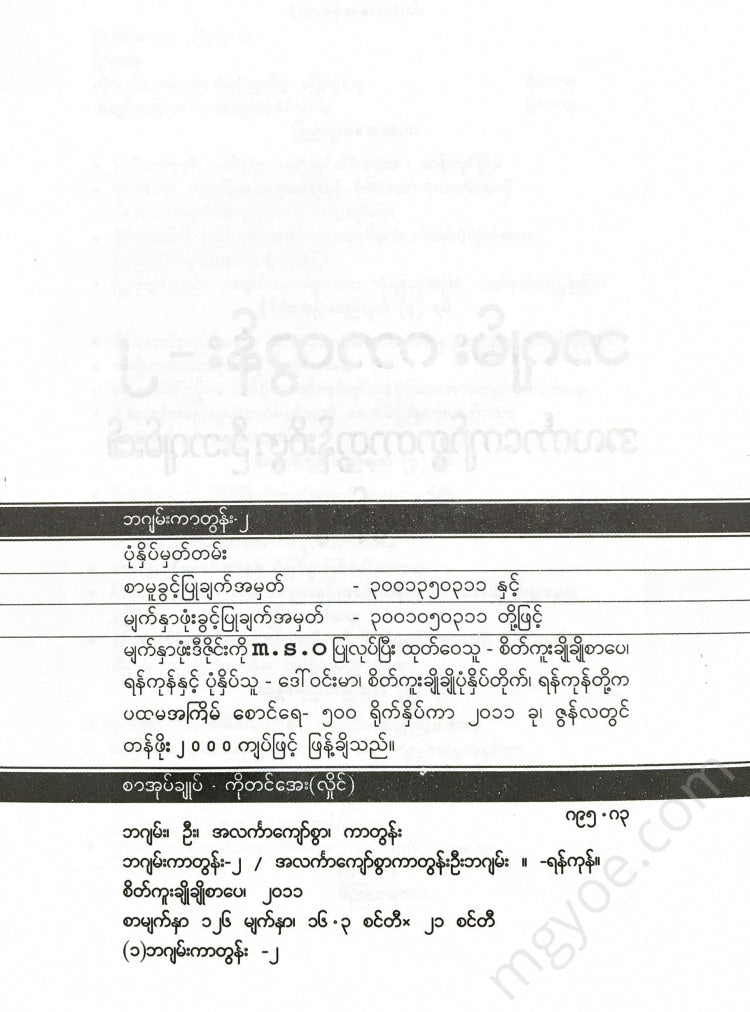 ဘဂျမ်းကာတွန်း-၂
ပုံနှိပ်မှတ်တမ်း
စာမူခွင့်ပြုချက်အမှတ် - ၃၀၀၁၃၅၀၃၁၁ နှင့်
မျက်နှာဖုံးခွင့်ပြုချက်အမှတ် - ၃၀၀၁၀၅၀၃၁၁ တို့ဖြင့်
မျက်နှာဖုံးဒီဇိုင်းကို m.s.o ပြုလုပ်ပြီး ထုတ်ဝေသူ - စိတ်ကူးချိုချိုစာပေ၊
ရန်ကုန်နှင့် ပုံနှိပ်သူ - ဒေါ်ဝင်းမာ၊ စိတ်ကူးချိုချိုပုံနှိပ်တိုက်၊ ရန်ကုန်တို့က
ပထမအကြိမ် စောင်ရေ- ၅၀၀ ရိုက်နှိပ်ကာ ၂၀၁၁ ခု၊ ဇွန်လတွင်
တန်ဖိုး ၂၀၀၀ကျပ်ဖြင့် ဖြန့်ချိသည်။
စာအုပ်ချုပ် - ကိုတင်အေး(လှိုင်)
၈၉၅.၈၃
ဘဂျမ်း၊ ဦး၊ အလင်္ကာကျော်စွာ၊ ကာတွန်း
ဘဂျမ်းကာတွန်း-၂ / အလင်္ကာကျော်စွာကာတွန်းဦးဘဂျမ်း ။ -ရန်ကုန်။
စိတ်ကူးချိုချိုစာပေ၊ ၂၀၁၁
စာမျက်နှာ ၁၂၆ မျက်နှာ၊ ၁၆.၃ စင်တီ× ၂၁ စင်တီ
(၁)ဘဂျမ်းကာတွန်း -၂
mgyoe.com